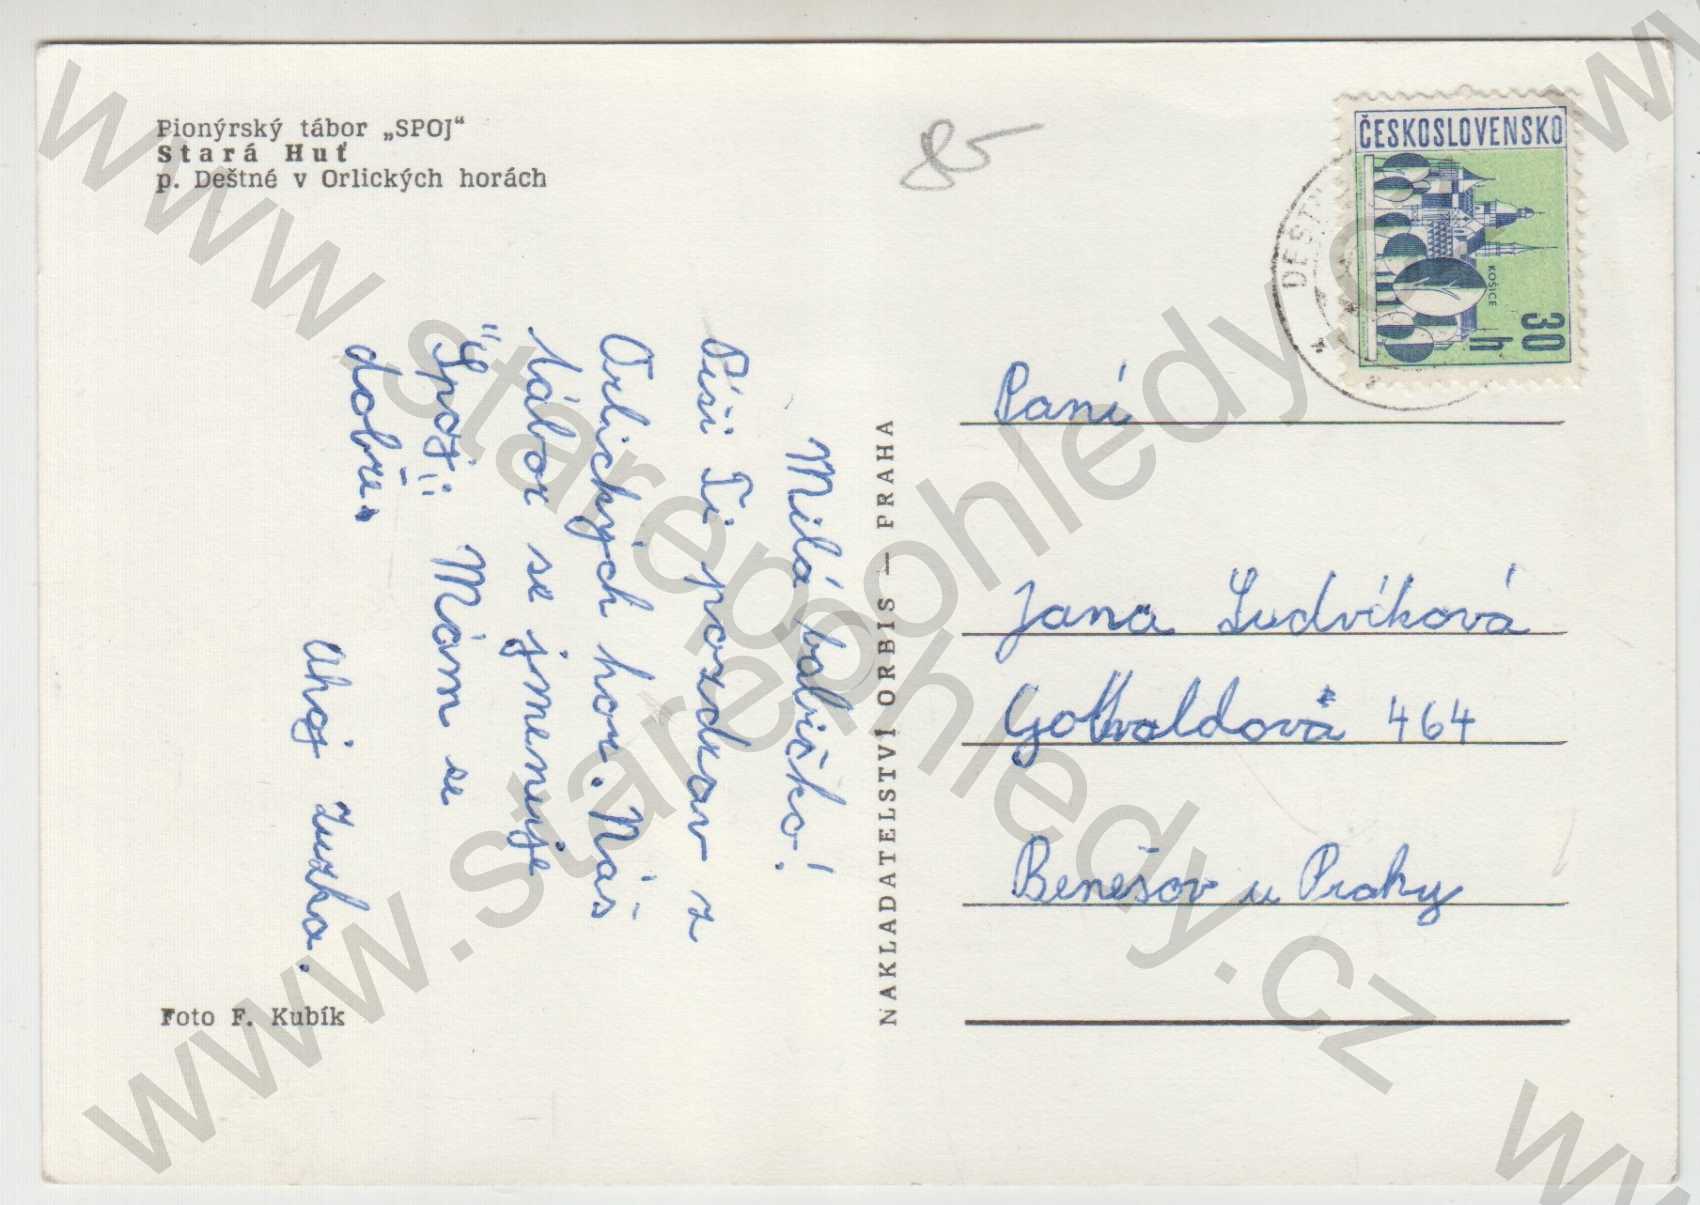 Pionýrský tábor „SPOJ“
Stará Huť
p. Deštné v Orlických horách
85
ČESKOSLOVENSKO
KOŠICE
30
h
Milá babičko!
Píši Ti pozdrav z
Orlických hor. Náš
tábor se jmenuje
"Spoj": Mám se
dobře.
Ahoj Zuzka.
NAKLADATELSTVÍ ORBIS — PRAHA
Paní
Jana Ludvíková
Gottvaldova 464
Benešov u Prahy
Foto F. Kubík
www.starepohledy.cz
www.starepohledy.cz